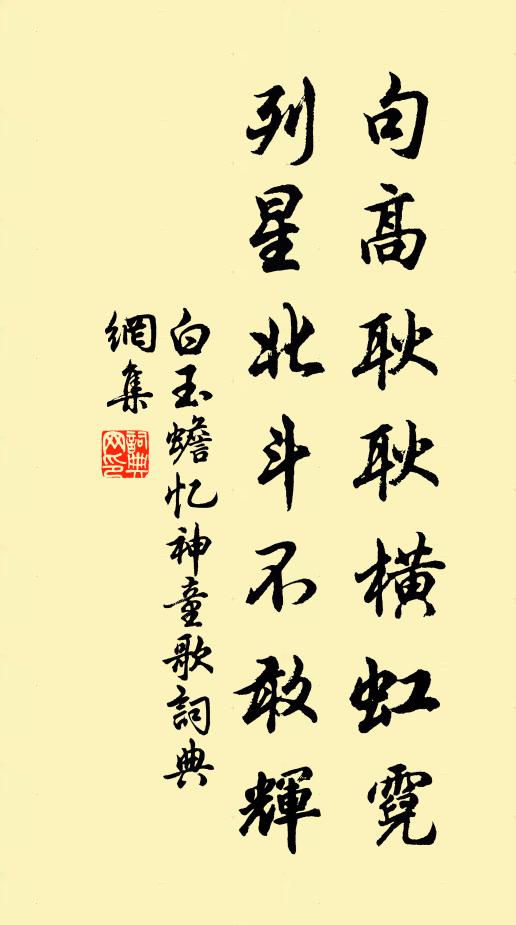 句高耿耿橫虹霓
列星北斗不敢輝
白玉蟾忆神童歌詞典
網集
詞典网印